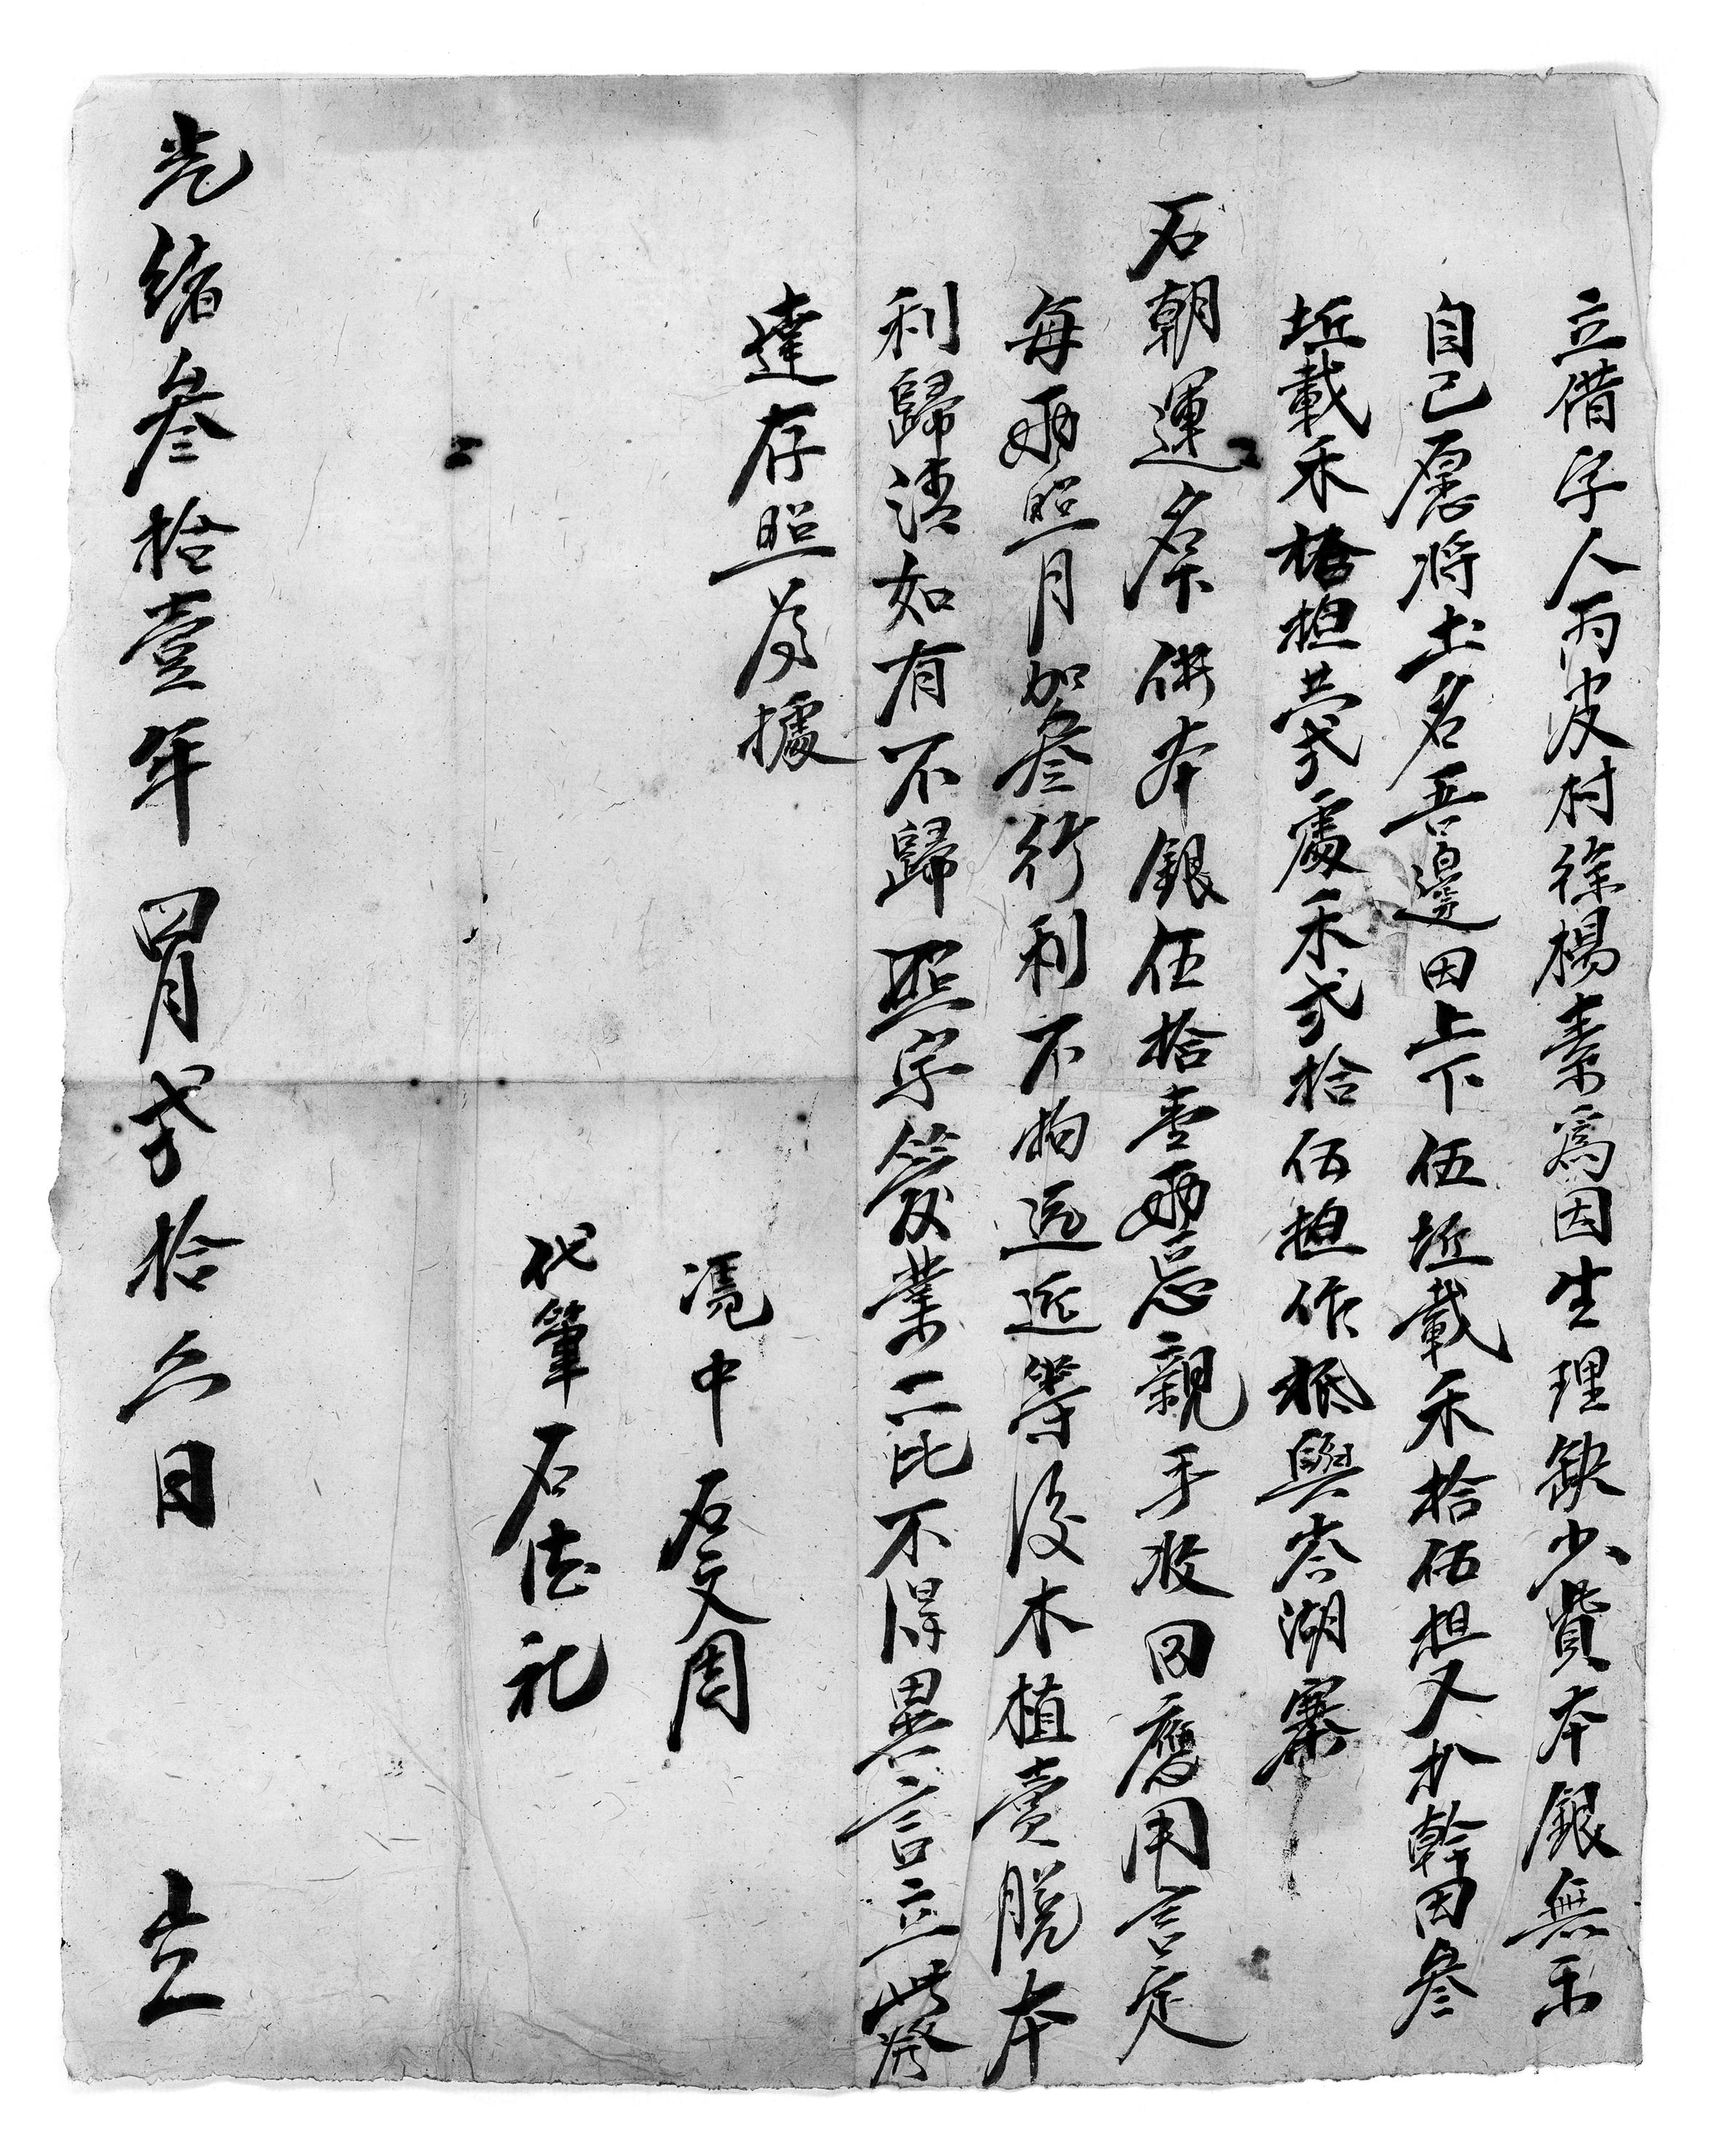 立借字人丙皮村徐楊素為因生理缺少費本銀無示
自己愿將土名吾邊田上下伍坵載禾拾伍担又扒幹田叁
坵載禾拾担共弍處禾弍拾伍担作抵與岑湖寨
石朝運名下借本銀伍拾壹两忘親手收回應用言定
每两照月加叁行利不拘远近等後木植賣脱本
利歸清如有不歸照字發業二比不得異言立此發
達存照為據
憑中 石文周
代筆 石德礼
光緒叁拾壹年四月弍拾六日 立